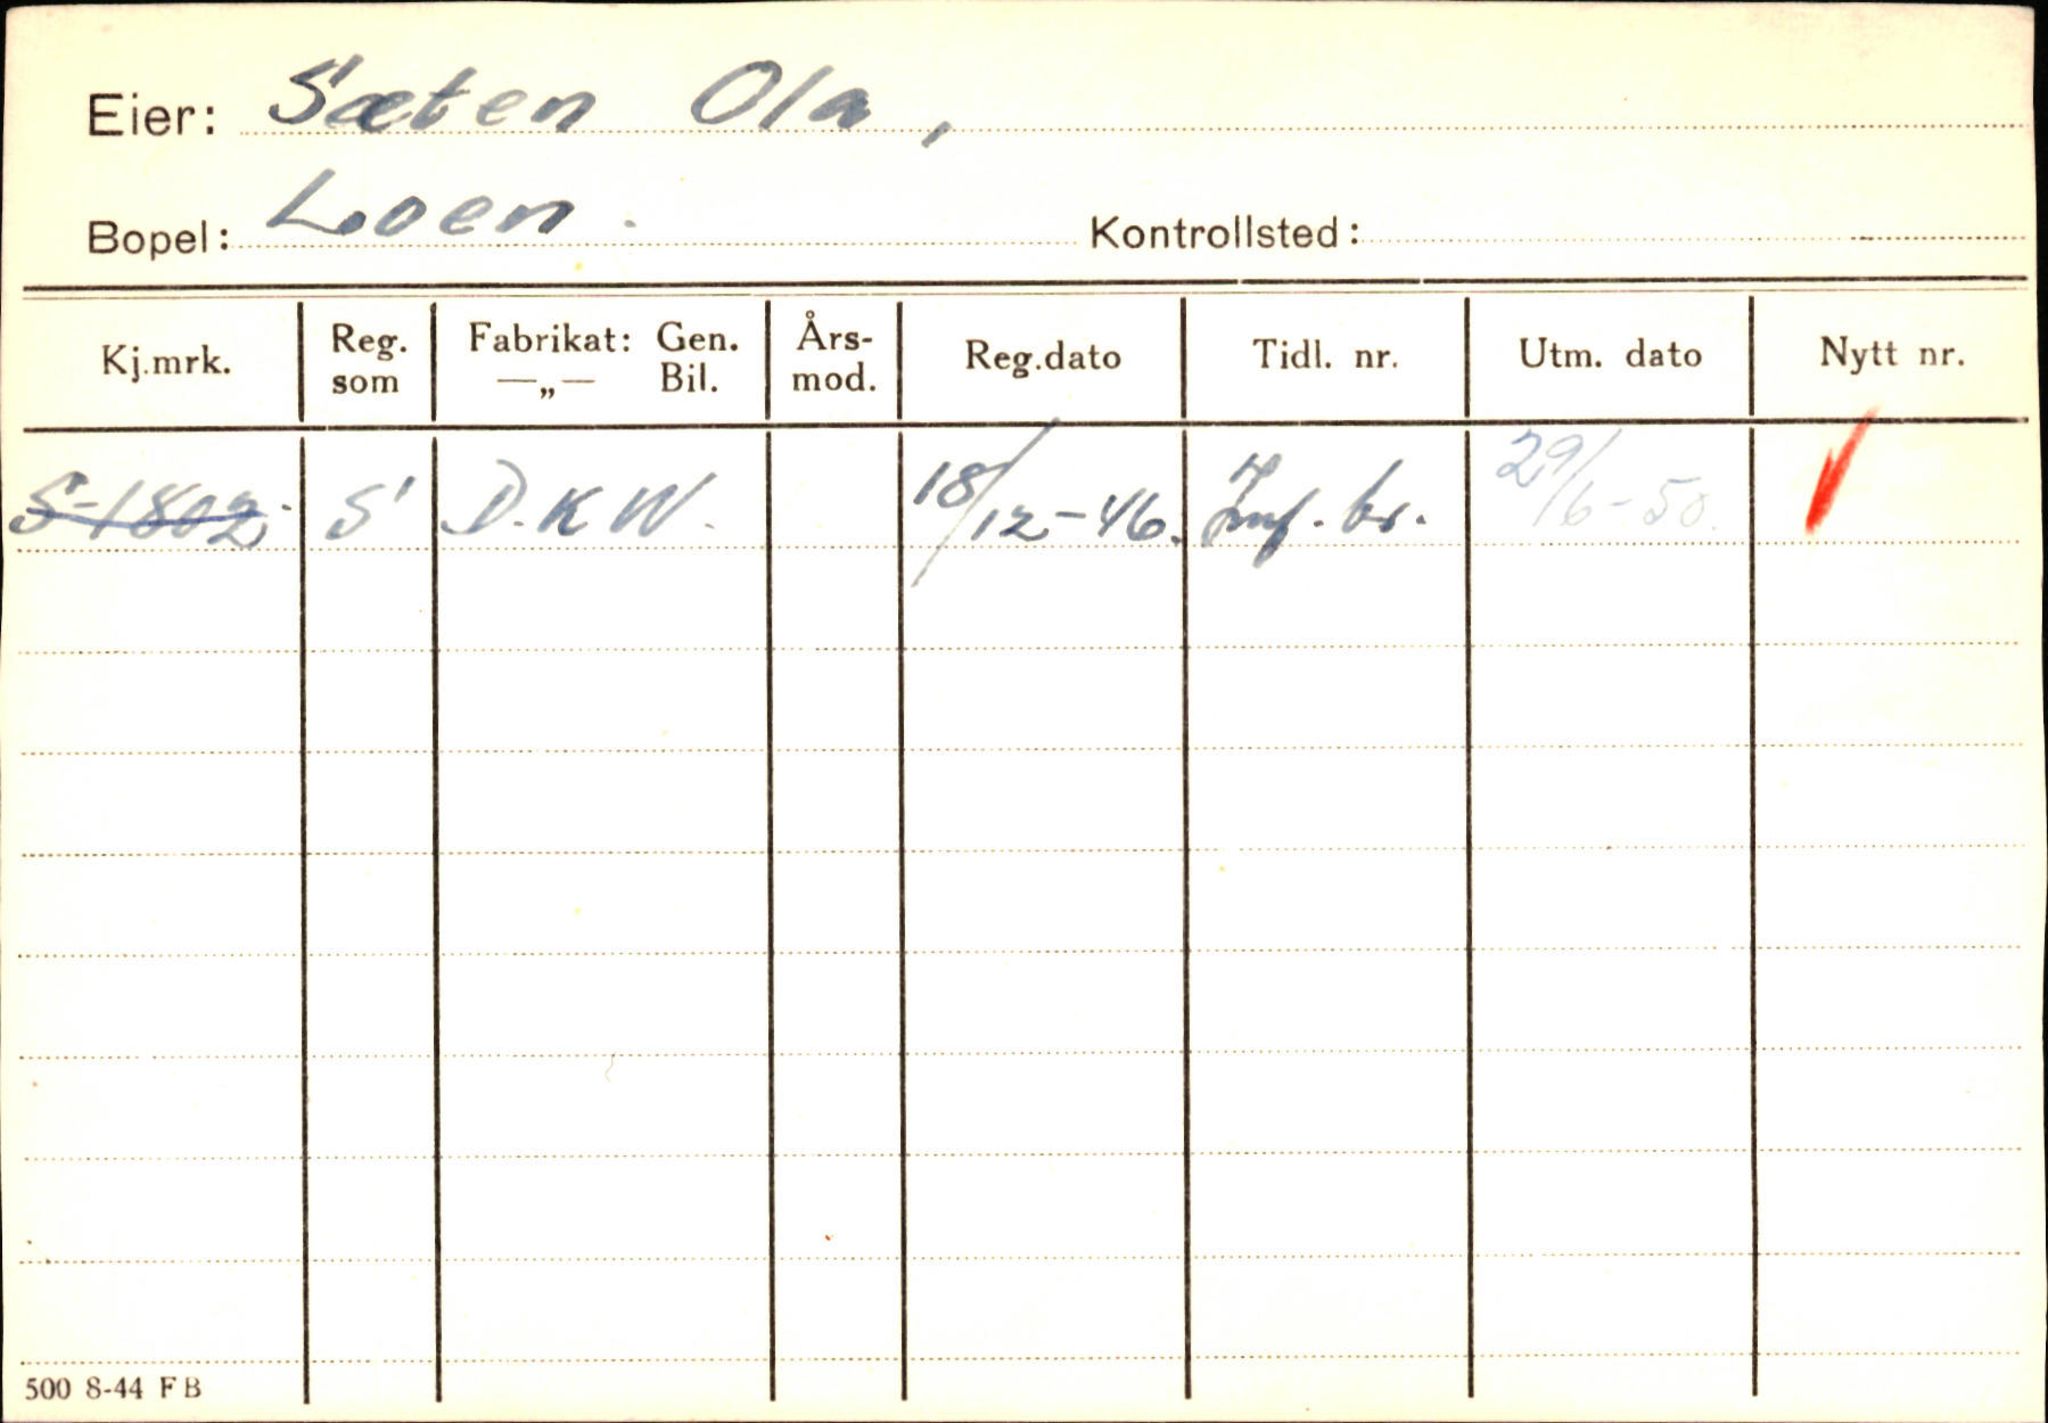 Eier: Sæten Ola,
Bopel: Loen. Kontrollsted:
Kj.mrk. Reg. som Fabrikat: Gen. —„— Bil. Års-mod. Reg.dato Tidl. nr. Utm. dato Nytt nr.
S-1802. S D.K.W. 18/12-46. br. 29/6-50.
500 8-44 FB